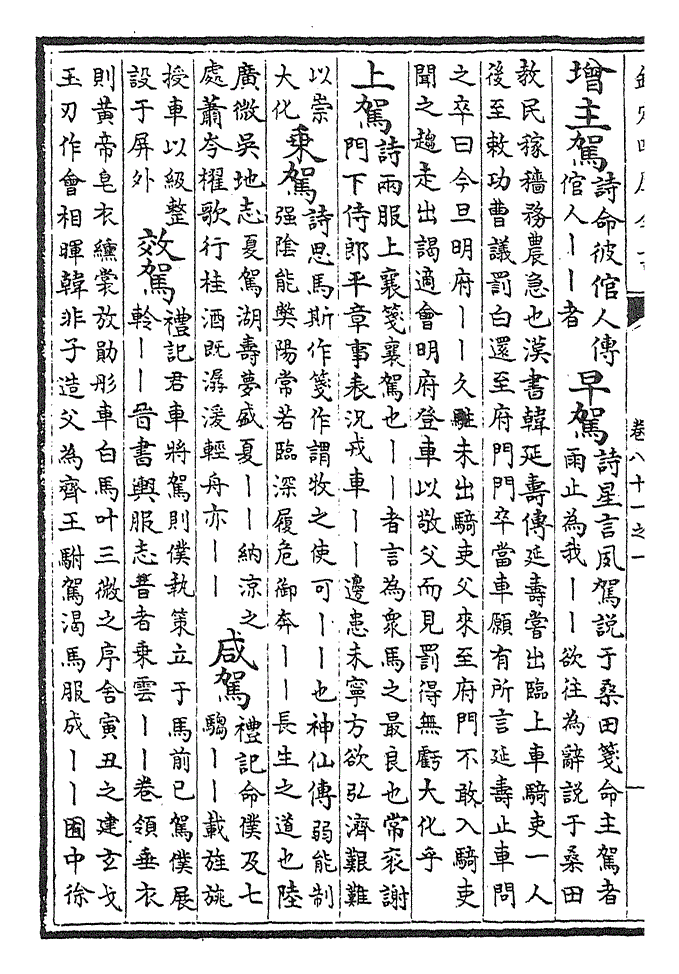 卷八十一之一
一
增主駕
詩命彼倌人傳
倌人丨丨者
早駕
詩星言夙駕説于桑田箋命主駕者
雨止為我丨丨欲往為辭説于桑田
教民稼穡務農急也漢書韓延壽傳延壽嘗出臨上車騎吏一人
後至敕功曹議罰白還至府門門卒當車願有所言延壽止車問
之卒曰今旦明府丨丨久駐未出騎吏父來至府門不敢入騎吏
聞之趨走出謁適會明府登車以敬父而見罰得無虧大化乎
上駕
詩兩服上襄箋襄駕也丨丨者言為衆馬之最良也常衮謝
門下侍郎平章事表況戎車丨丨邊患未寧方欲弘濟艱難
以崇
大化
乘駕
詩思馬斯作箋作謂牧之使可丨丨也神仙傳弱能制
强陰能弊陽常若臨深履危御奔丨丨長生之道也陸
廣微吳地志夏駕湖壽夢盛夏丨丨納涼之
處蕭岑櫂歌行桂酒既潺湲輕舟亦丨丨
咸駕
禮記命僕及七
騶丨丨載旌旐
授車以級整
設于屏外
效駕
禮記君車將駕則僕執策立于馬前已駕僕展
軨丨丨晉書輿服志昔者乘雲丨丨卷領垂衣
則黃帝皂衣纁裳放勛彤車白馬叶三微之序舍寅丑之建玄戈
玉刃作會相暉韓非子造父為齊王駙駕渴馬服成丨丨囿中徐